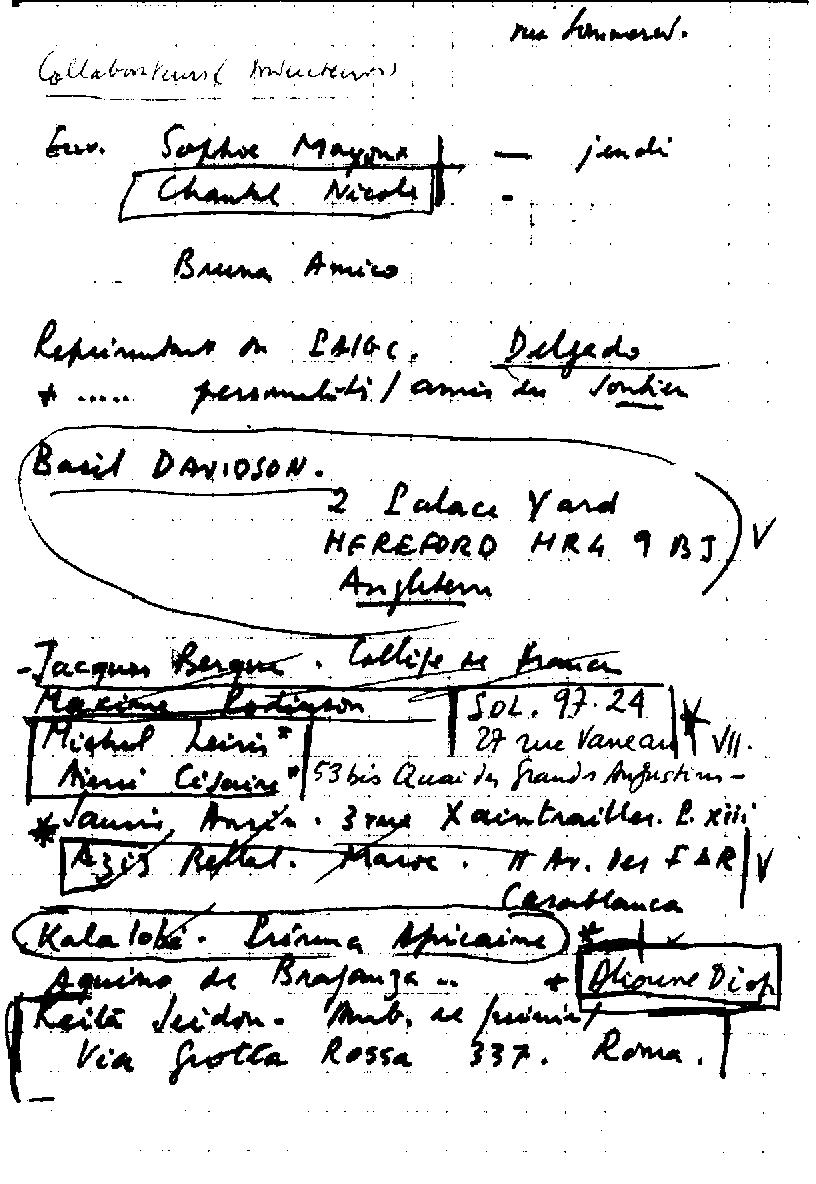 rue Sommerard.
Collaborateurs
Sophie Mayoux — jeudi
Chantal Nicole -
Bruna Amico
Représentant du PAIGC. Delgado
+ ..... personnalités / amis du soutien
Basil DAVIDSON.
2 Palace Yard
HEREFORD HR4 9 BJ V
Angleterre
- Jacques Berque. Collège de France
Maxime Rodinson SOL. 97.24
Michel Leiris* 27 rue Vaneau VII.
Aimé Césaire* 53 bis Quai des Grands Augustins -
* Samir Amin. 3 rue Xaintrailles. P. xiii
Azis Bellal. Maroc. Av. des FAR V
Casablanca
Kala Lobé. Présence Africaine *
Aquino de Braganza ... + Alioune Diop
Keita Seidou. Amb. de
Via Grotta Rossa 337. Roma.